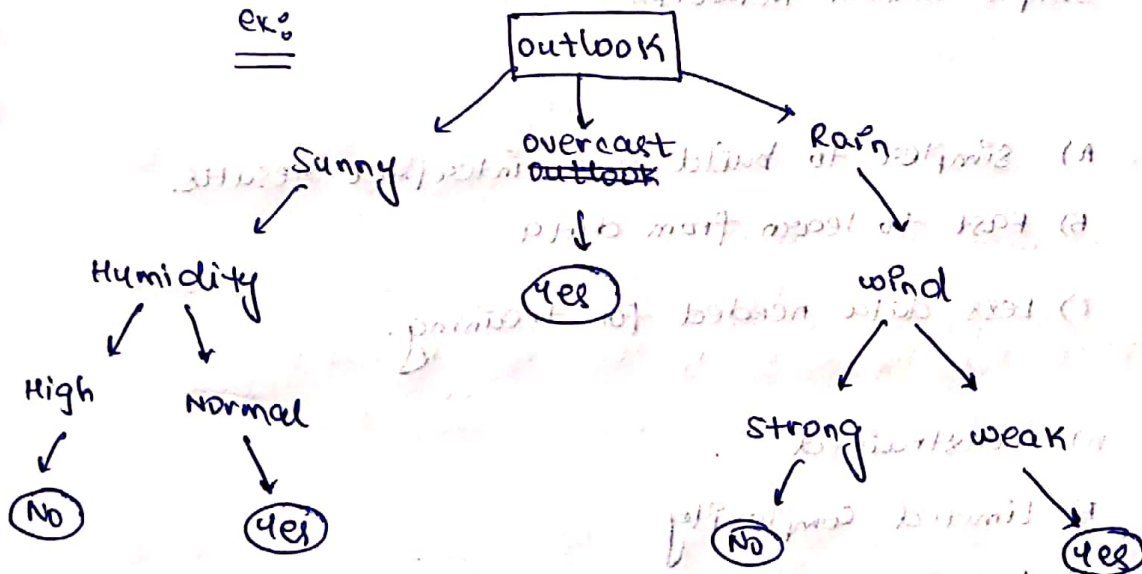 ex:
outlook
Sunny
overcast
outlook
Rain
Humidity
Yes
wind
High
Normal
Strong
weak
No
Yes
No
Yes